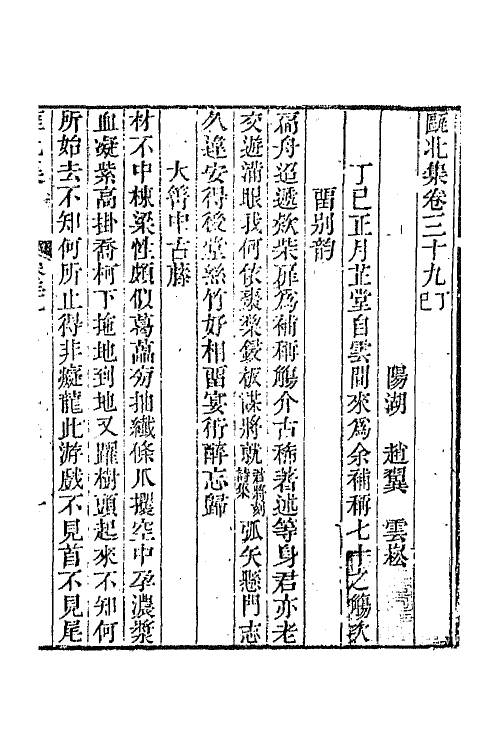 甌北集卷三十九 丁巳
陽湖 趙翼 雲崧
丁巳正月芷堂自雲間來爲余補稱七十之觴欵
畱別韵
扁舟迢遞欸柴扉爲補稱觴介古稀著述等身君亦老
交遊滿眼我何依裘槃鍰板謀將就君將刻詩集弧矢懸門志
久違安得後堂絲竹好相畱宴衎醉忘歸
大箐中古藤
材不中棟梁性頗似葛藟旁抽纖條爪攫空中孕濃漿
血凝紫高掛喬柯下拖地到地又躍樹頭起來不知何
所始去不知何所止得非癡龍此游戲不見首不見尾